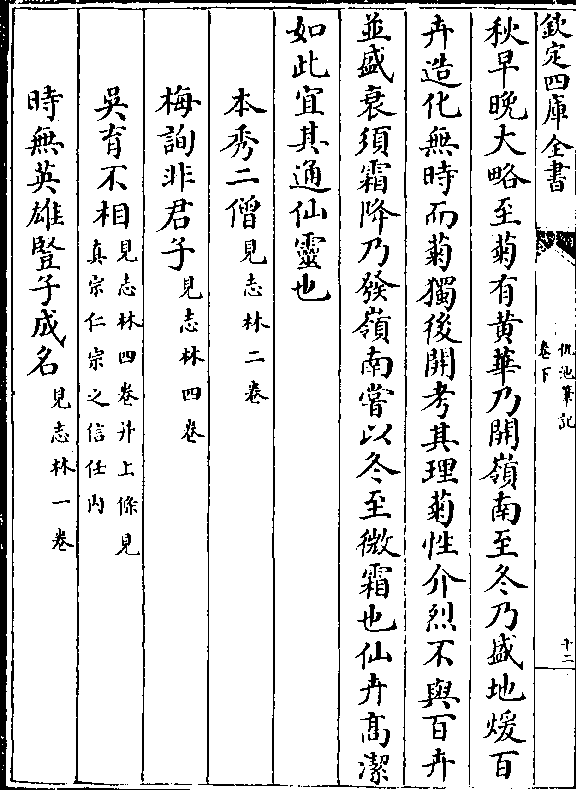 欽定四庫全書
仇池筆記
卷下
十二
秋早晚大略至菊有黄華乃開嶺南至冬乃盛地煖百
卉造化無時而菊獨後開考其理菊性介烈不與百卉
並盛衰須霜降乃發嶺南嘗以冬至微霜也仙卉髙潔
如此宜其通仙靈也
本秀二僧見志林二卷
梅詢非君子見志林四卷
吳育不相見志林四卷并上條見
真宗仁宗之信任内
時無英雄豎子成名見志林一卷